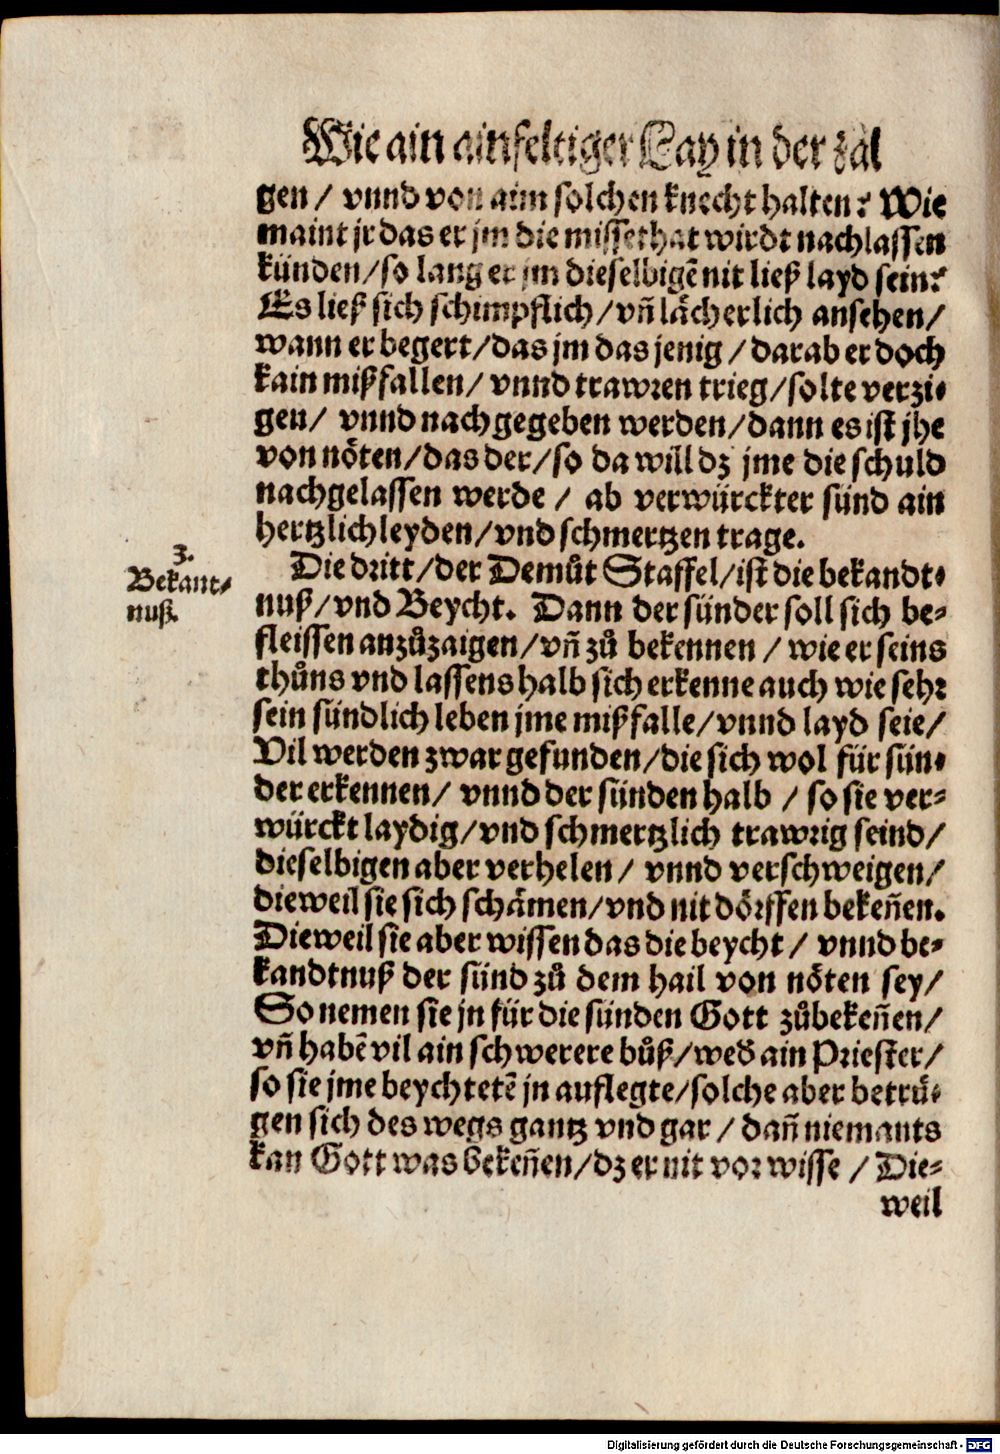 Wie ain ainfeltiger Lay in der zal
gen / vnnd von aim solchen knecht halten? Wie
maint jr das er jm die missethat wirdt nachlassen
künden/so lang er jm dieselbigẽ nit ließ layd sein?
Es ließ sich schimpflich/vñ lächerlich ansehen/
wann er begert/das jm das jenig / darab er doch
kain mißfallen/ vnnd trawren trieg/solte verzi-
gen/ vnnd nachgegeben werden/dann es ist jhe
von nöten/das der/so da will dz jme die schuld
nachgelassen werde / ab verwürckter sünd ain
hertzlich leyden/vnd schmertzen trage.
3.
Bekant-
nuß.
Die dritt/der Demůt Staffel/ist die bekandt-
nuß/vnd Beycht. Dann der sünder soll sich be-
fleissen anzůzaigen/vñ zů bekennen / wie er seins
thůns vnd lassens halb sich erkenne auch wie sehr
sein sündlich leben jme mißfalle/vnnd layd seie/
Vil werden zwar gefunden/die sich wol für sün-
der erkennen/ vnnd der sünden halb / so sie ver-
würckt laydig/vnd schmertzlich trawrig seind/
dieselbigen aber verhelen/ vnnd verschweigen/
dieweil sie sich schämen/vnd nit dörffen bekeñen.
Dieweil sie aber wissen das die beycht/ vnnd be-
kandtnuß der sünd zů dem hail von nöten sey/
So nemen sie jn für die sünden Gott zůbekeñen/
vñ habẽ vil ain schwerere bůß/wed ain Priester/
so sie jme beychtetẽ jn auflegte/solche aber betrü-
gen sich des wegs gantz vnd gar / dañ niemants
kan Gott was bekeñen/dz er nit vor wisse / Die-
weil
Digitalisierung gefördert durch die Deutsche Forschungsgemeinschaft - DFG